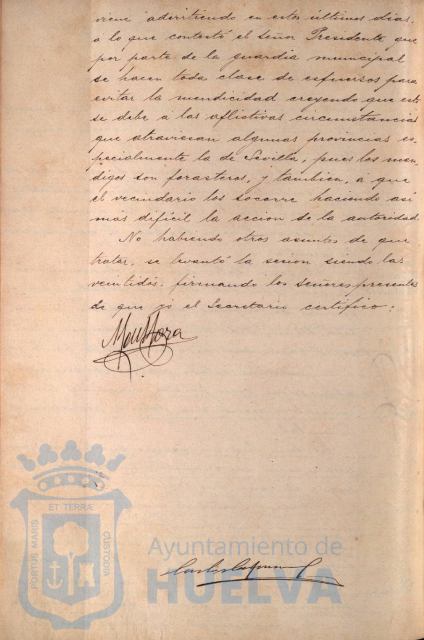 viene advirtiendo en estos últimos dias.
a lo que contestó el Señor Presidente que
por parte de la guardia municipal
se hacen toda clase de esfuerzos para
evitar la mendicidad creyendo que esto
se debe á las aflictivas circunstancias
que atraviesan algunas provincias es-
pecialmente la de Sevilla, pues los men-
digos son forasteros, y tambien, a que
el vecindario los socorre haciendo asi
más difícil la accion de la autoridad.
No habiendo otros asuntos de que
tratar, se levantó la sesion siendo las
veintidos, firmando los señores presentes
de que yó el Secretario certifico:
PORTUS MARIS
ET TERRÆ
CUSTODIA
Ayuntamiento de
HUELVA